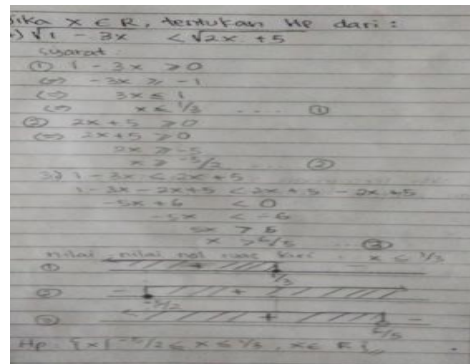 Jika X ∈ R, tentukan Hp dari :
) √1 - 3x < √2x + 5
Syarat :
① 1 - 3x ≥ 0
<=> -3x ≥ -1
<=> 3x ≤ 1
<=> x ≤ 1/3 ... ①
② 2x + 5 ≥ 0
<=> 2x + 5 ≥ 0
2x ≥ -5
x ≥ -5/2 ②
3) 1 - 3x < 2x + 5
1 - 3x - 2x + 5 < 2x + 5 - 2x + 5
-5x + 6 < 0
-5x < -6
5x > 6
x > 6/5 ... ③
nilai - nilai nol
① + 1/3 -
② - -5/2 +
③ + 6/5 -
Hp : {x| -5/2 ≤ x ≤ 1/3, x ∈ R}